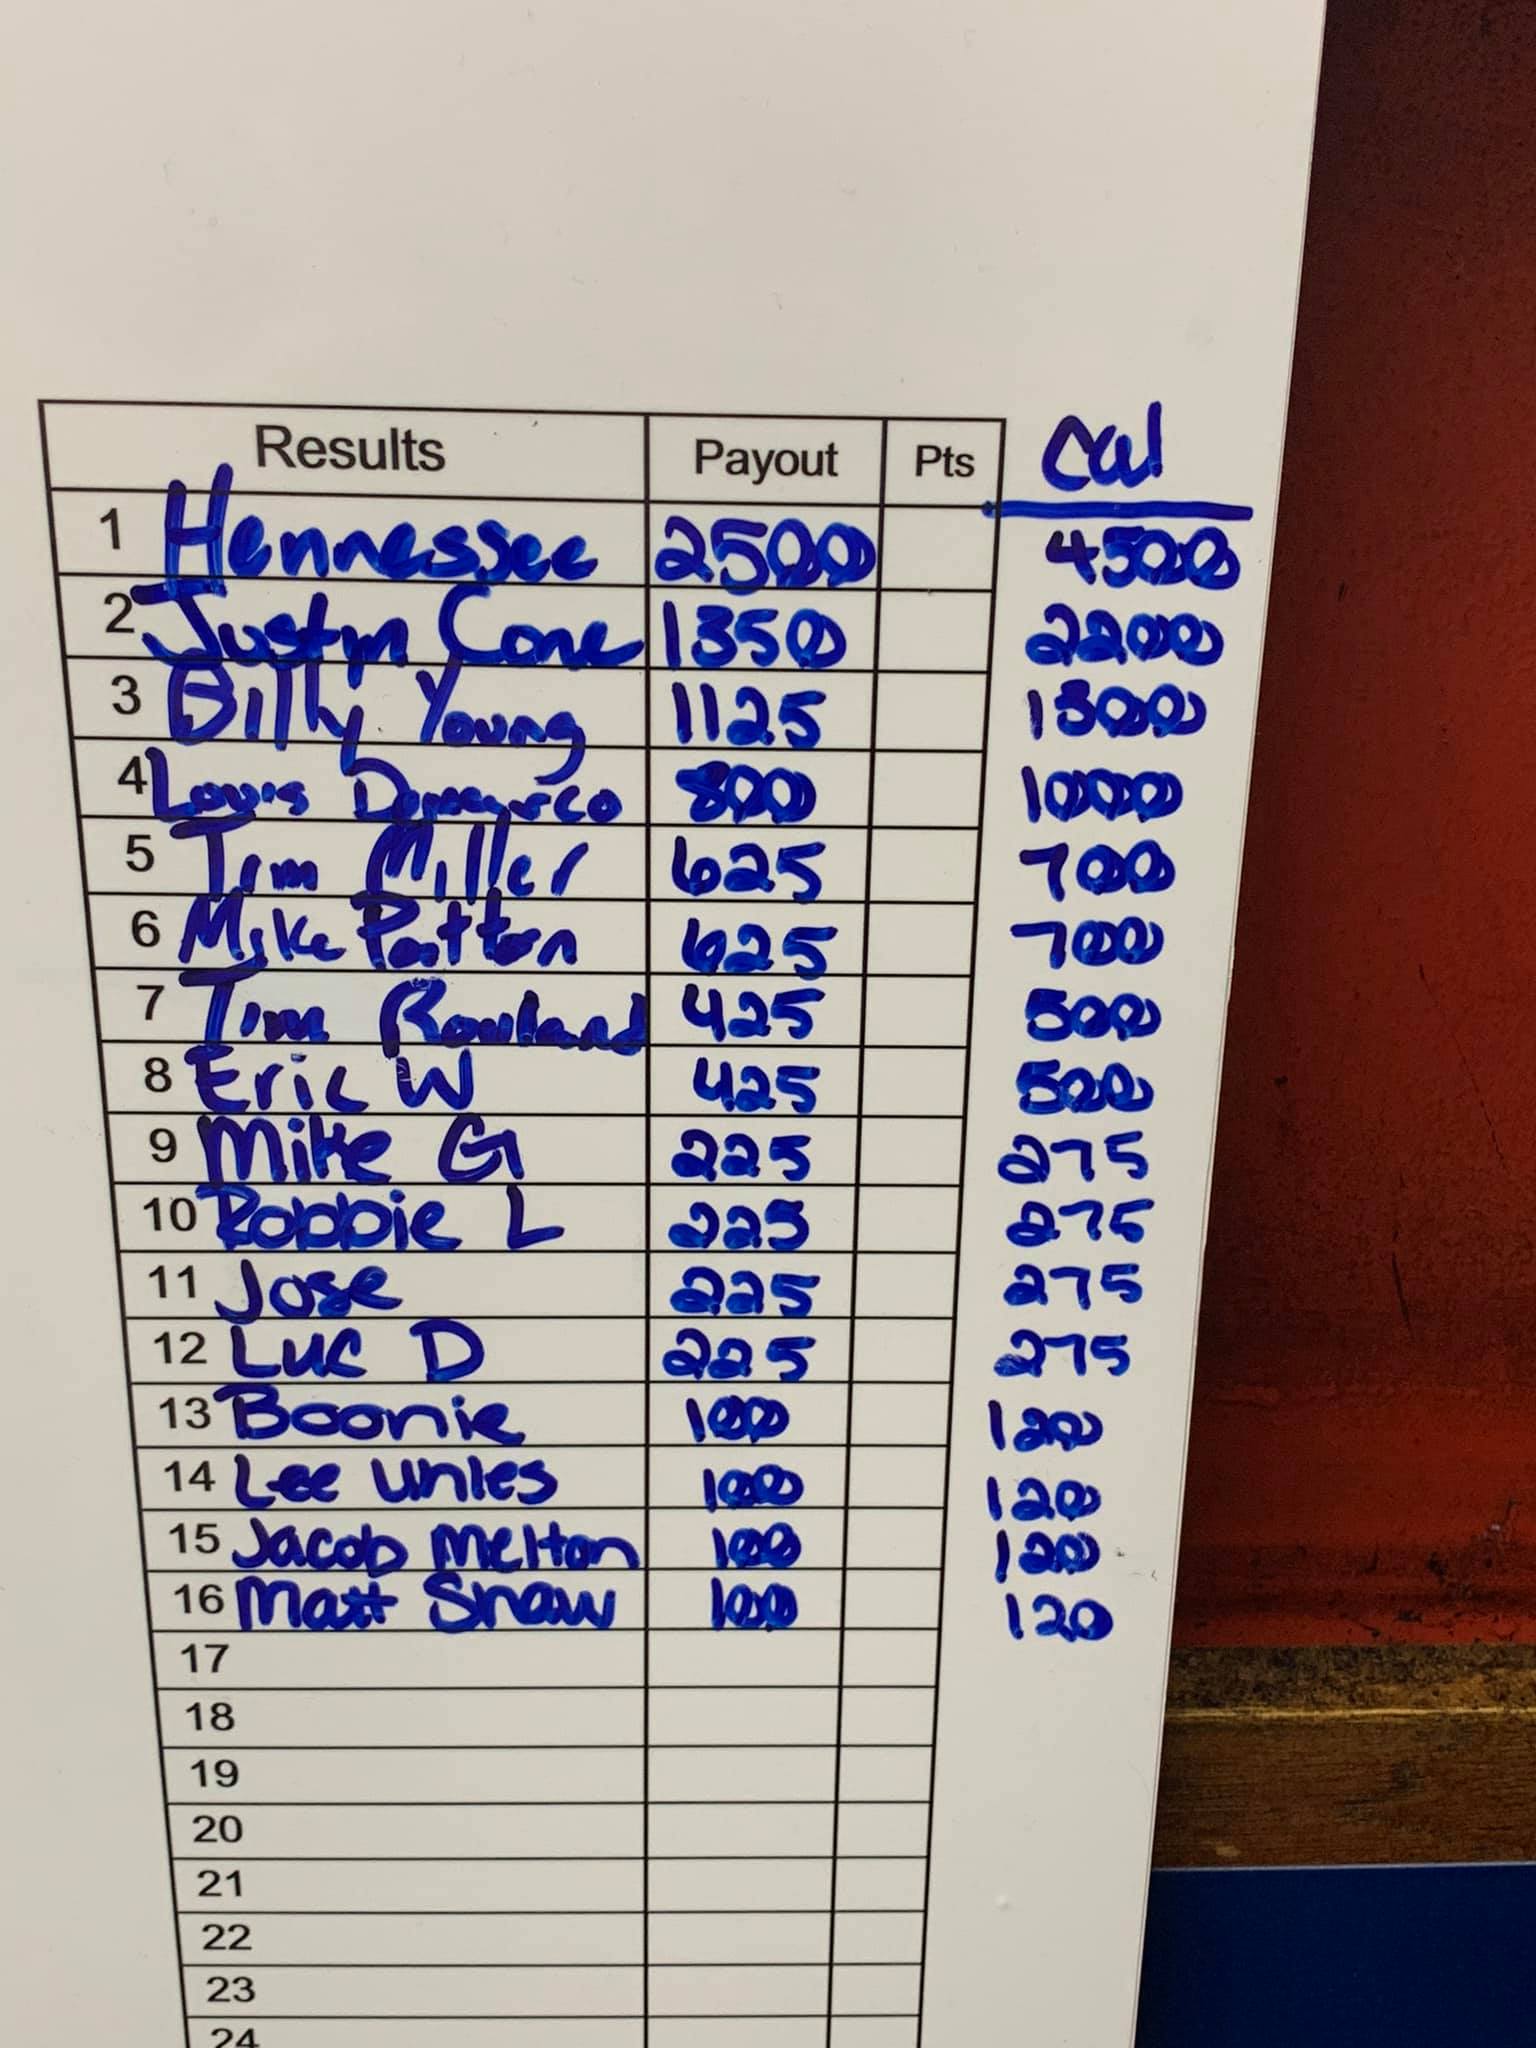 Results Payout Pts Cal
1 Hennessee 2500 4500
2 Justin Cone 1350 2200
3 Billy Young 1125 1500
4 Louis Demarco 800 1000
5 Tim Miller 625 700
6 Mike Patton 625 700
7 Tim Rowland 425 500
8 Eric W 425 500
9 Mike G 225 275
10 Robbie L 225 275
11 Jose 225 275
12 Luc D 225 275
13 Boonie 100 120
14 Lee Unles 100 120
15 Jacob Melton 100 120
16 Matt Shaw 100 120
17
18
19
20
21
22
23
24